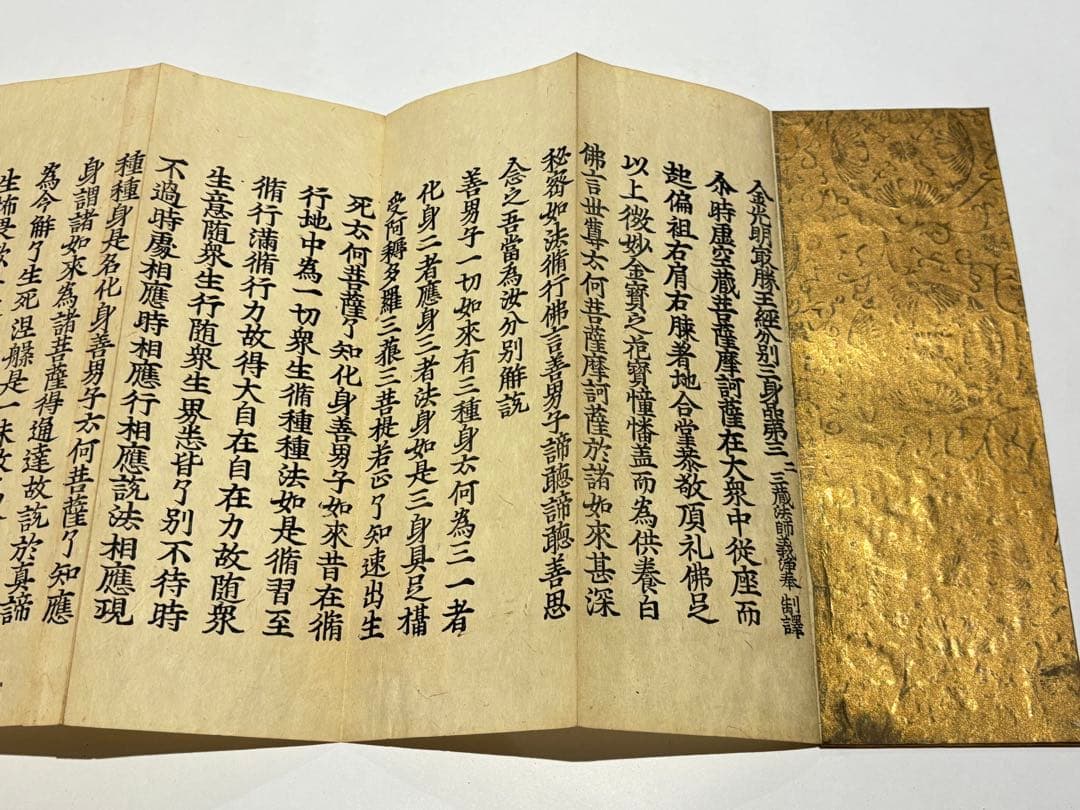 金光明最勝王經分别三身品第三 二 三藏法師義淨奉 制譯
尒時虚空藏菩薩摩訶薩在大衆中従座而
起偏袒右肩右膝著地合掌恭敬頂礼佛足
以上微妙金寶之花寶憧幡盖而為供養白
佛言世尊云何菩薩摩訶薩於諸如來甚深
秘密如法脩行佛言善男子諦聽諦聽善思
念之吾當為汝分别解說
善男子一切如來有三種身云何為三一者
化身二者應身三者法身如是三身具足攝
受阿耨多羅三藐三菩提若正了知速出生
死云何菩薩了知化身善男子如來昔在脩
行地中為一切衆生脩種種法如是脩習至
脩行滿脩行力故得大自在自在力故随衆
生意随衆生行随衆生界悉皆了别不待時
不過時處相應時相應行相應說法相應現
種種身是名化身善男子云何菩薩了知應
身謂諸如來為諸菩薩得通達故說於真諦
為令解了生死涅槃是一味故
生怖畏歡